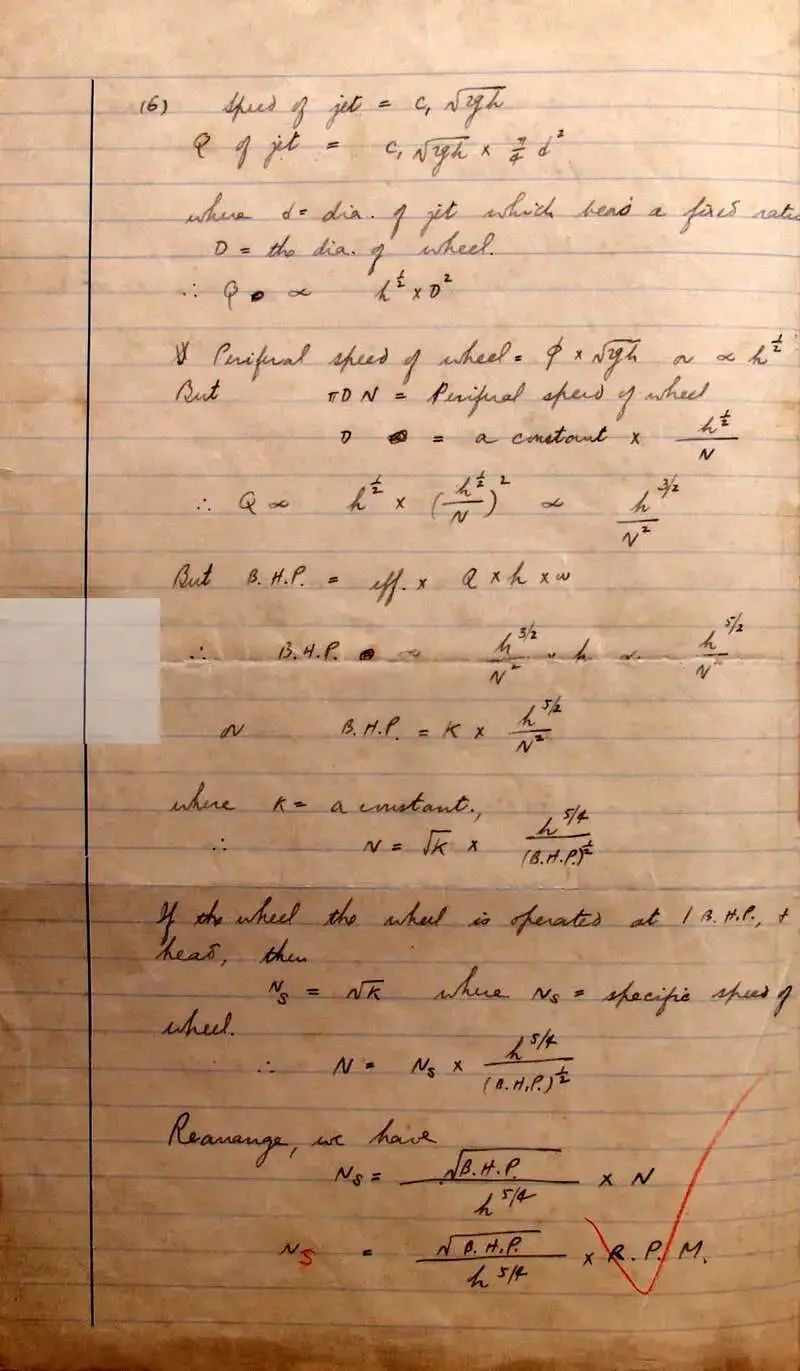 (6) Speed of jet = C₁ √2gh
Q of jet = C₁ √2gh × π/4 d²
where d = dia. of jet which bears a fixed ratio
D = the dia. of wheel.
∴ Q ∝ h^½ × D²
Periferal speed of wheel = φ × √2gh or ∝ h^½
But πDN = Periferal speed of wheel
D = a constant × h^½/N
∴ Q ∝ h^½ × (h^½/N)² ∝ h^3/2/N²
But B.H.P. = eff. × Q × h × w
∴ B.H.P. ∝ h^3/2/N² × h ∝ h^5/2/N
or B.H.P. = K × h^5/2/N²
where K = a constant.,
∴ N = √K × h^5/4/(B.H.P.)^½
If the wheel the wheel is operated at 1 B.H.P., +
head, then
N_S = √K where N_S = specific speed of
wheel.
∴ N = N_S × h^5/4/(B.H.P.)^½
Rearange, we have
N_S = √B.H.P./h^5/4 × N
N_S = √B.H.P./h^5/4 × R.P.M.